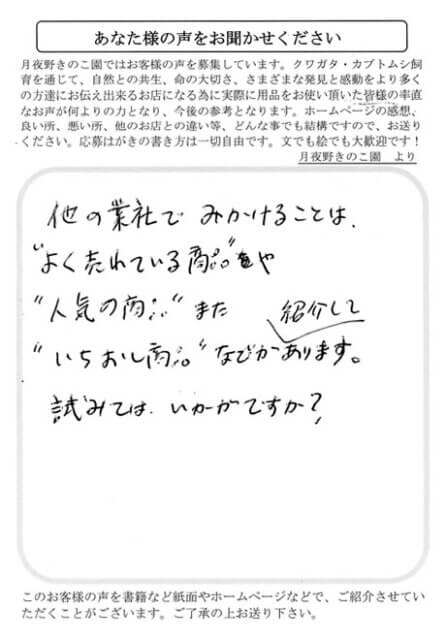 あなた様の声をお聞かせください
月夜野きのこ園ではお客様の声を募集しています。クワガタ・カブトムシ飼
育を通じて、自然との共生、命の大切さ、さまざまな発見と感動をより多く
の方達にお伝え出来るお店になる為に実際に用品をお使い頂いた皆様の率直
なお声が何よりの力となり、今後の参考となります。ホームページの感想、
良い所、悪い所、他のお店との違い等、どんな事でも結構ですので、お送り
ください。応募はがきの書き方は一切自由です。文でも絵でも大歓迎です！
月夜野きのこ園 より
他の業社で みかけることは、
"よく売れている商品"や
"人気の商品" また 紹介して
"いちおし商品" などがあります。
試みては、いかがですか？
このお客様の声を書籍など紙面やホームページなどで、ご紹介させてい
ただくことがございます。ご了承の上お送り下さい。